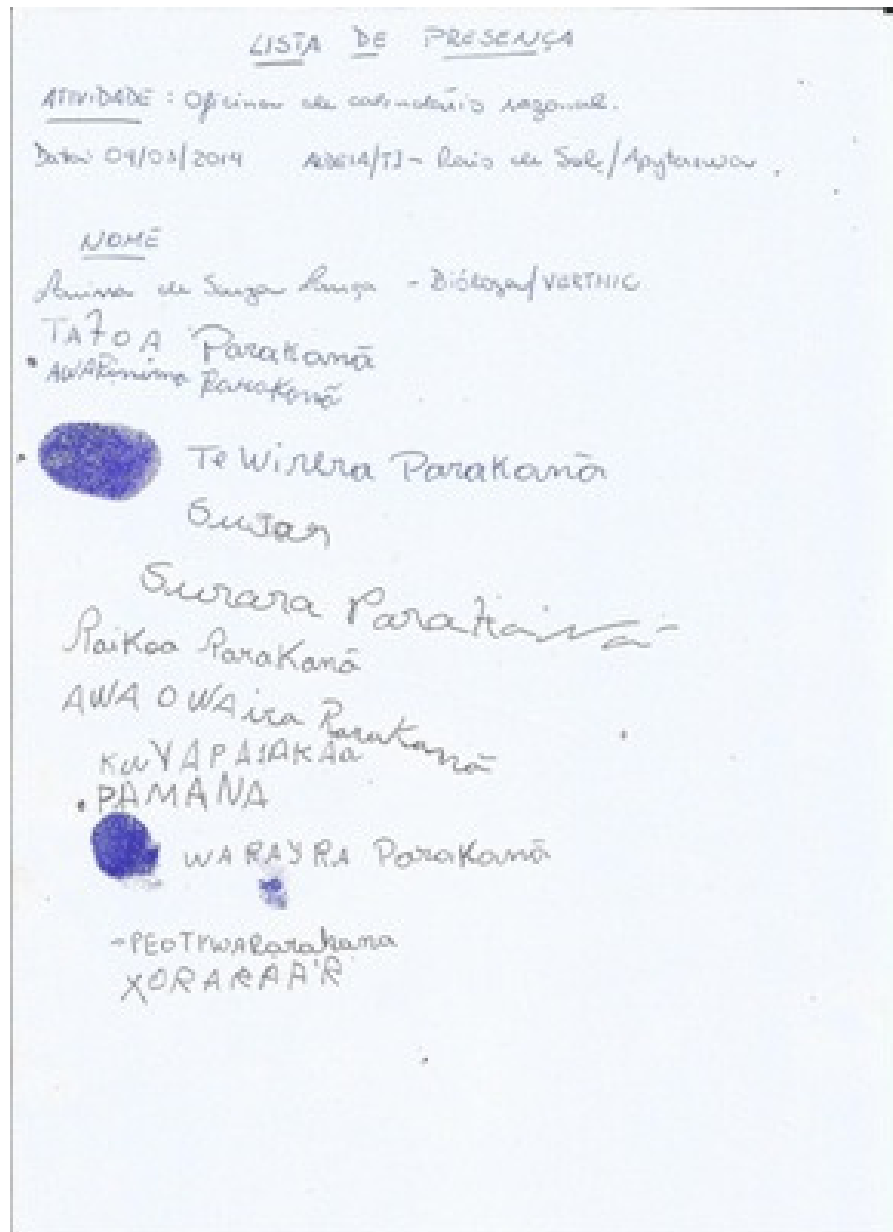 LISTA DE PRESENÇA
ATIVIDADE: Oficina de calendário sazonal.
Data: 09/03/2014 ALDEIA/TI - Raio de Sol/Apyterewa.
NOME
de Souza - Bióloga/VERTHIC
TAJOA Parakanã
AWARinima Parakanã
TeWirera Parakanã
Surara Parakanã
Raikoa Parakanã
AWA OWAira Parakanã
PAMANA
WARAYRA Parakanã
-PEOTYWARarakana
XORARAA'R